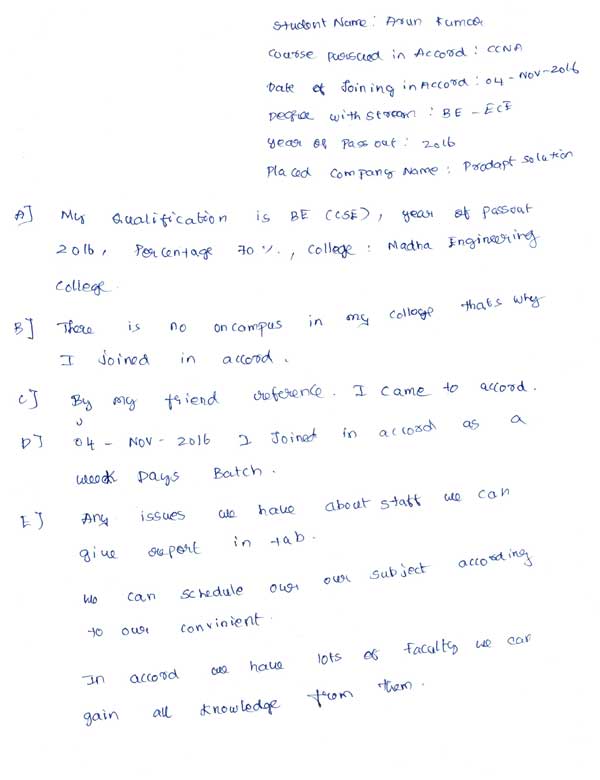 Student Name : Arun Kumar
Course pursued in Accord : CCNA
Date of Joining in Accord : 04 - NOV - 2016
Degree with Stream : BE - ECE
Year of Pass out : 2016
Placed Company Name : Prodapt solution
A] My Qualification is BE (CSE), year of Passout
2016, Percentage 70 %., College : Madha Engineering
College.
B] There is no oncampus in my college thats why
I Joined in accord.
C] By my friend reference. I came to accord.
D] 04 - NOV - 2016 I Joined in accord as a
week Days Batch.
E] Any issues we have about staff we can
give report in tab.
We can schedule our our subject according
to our convinient.
In accord we have lots of faculty we can
gain all knowledge from them.